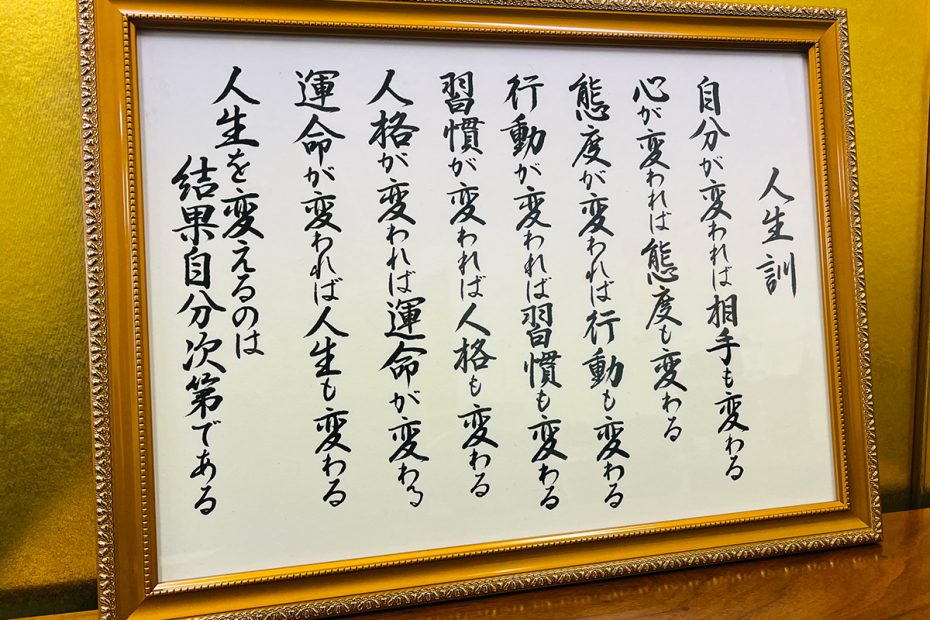 人生訓
自分が変われば相手も変わる
心が変われば態度も変わる
態度が変われば行動も変わる
行動が変われば習慣も変わる
習慣が変われば人格も変わる
人格が変われば運命が変わる
運命が変われば人生も変わる
人生を変えるのは
結果自分次第である